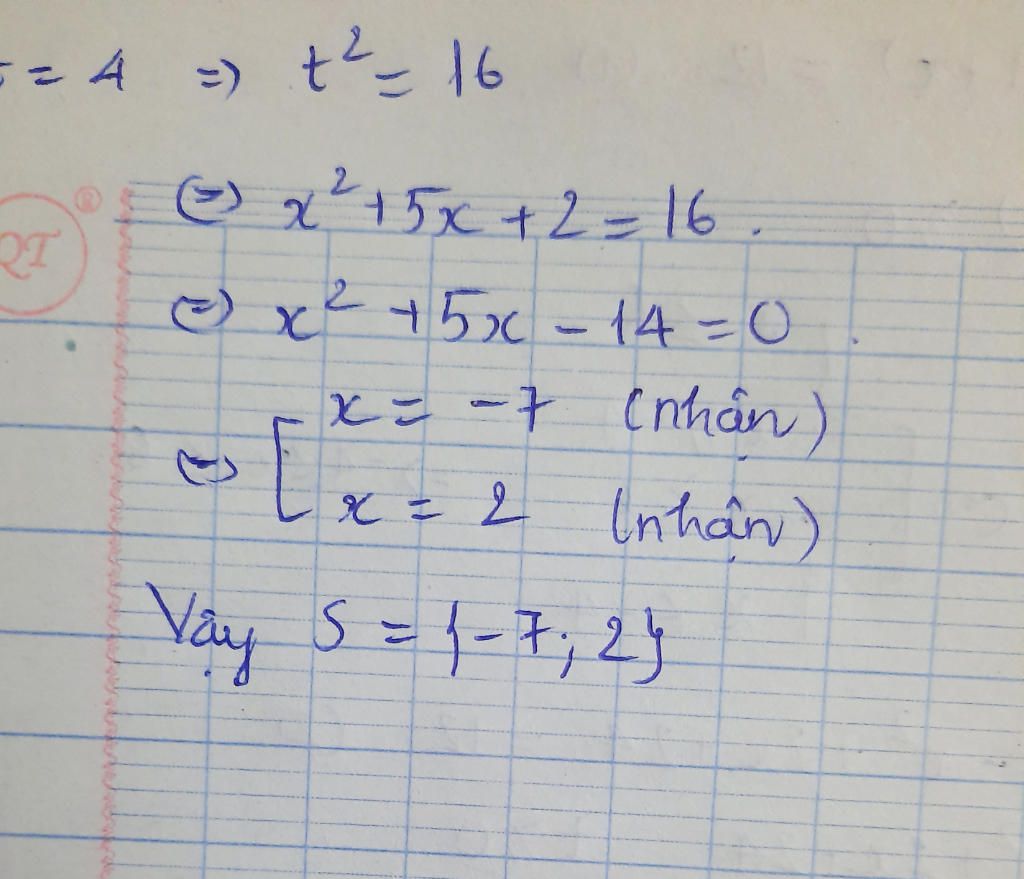 = 4 => t² = 16
QT ®
(=) x² + 5x + 2 = 16 .
(=) x² + 5x - 14 = 0 .
x = -7 (nhận)
(=) [
x = 2 (nhận)
Vậy S = {-7; 2}